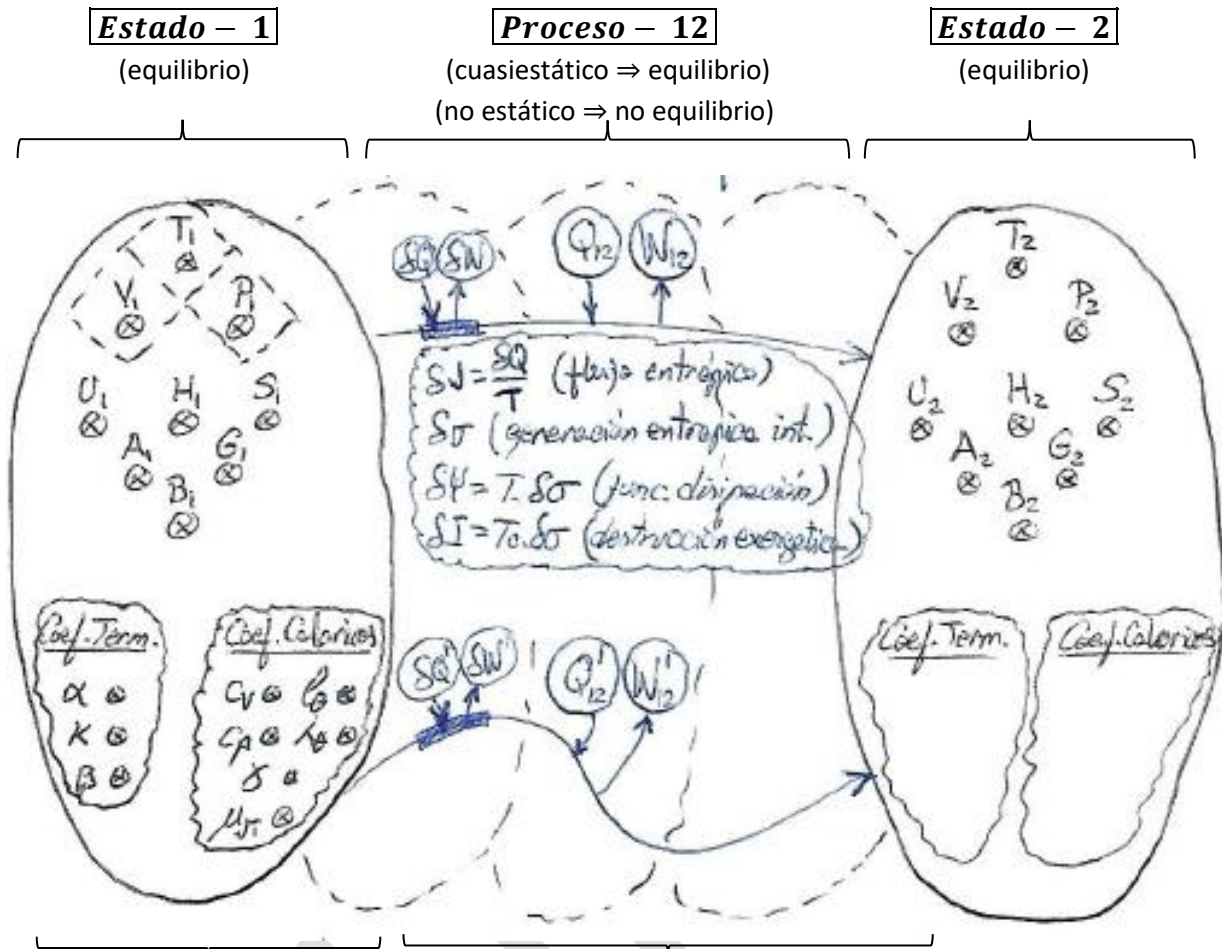 Estado − 1
(equilibrio)
Proceso − 12
(cuasiestático ⇒ equilibrio)
(no estático ⇒ no equilibrio)
Estado − 2
(equilibrio)
T₁
V₁ P₁
U₁ H₁ S₁
A₁ G₁
B₁
Coef. Term.
α
κ
β
Coef. Caloricos
c_V
c_p
γ
δQ δW Q₁₂ W₁₂
δJ = δQ/T (flujo entrópico)
δσ (generación entropica int.)
δΨ = T.δσ (func. disipación)
δI = T₀.δσ (destrucción exergetica)
δQ' δW' Q'₁₂ W'₁₂
T₂
V₂ P₂
U₂ H₂ S₂
A₂ G₂
B₂
Coef. Term.
Coef. Caloricos